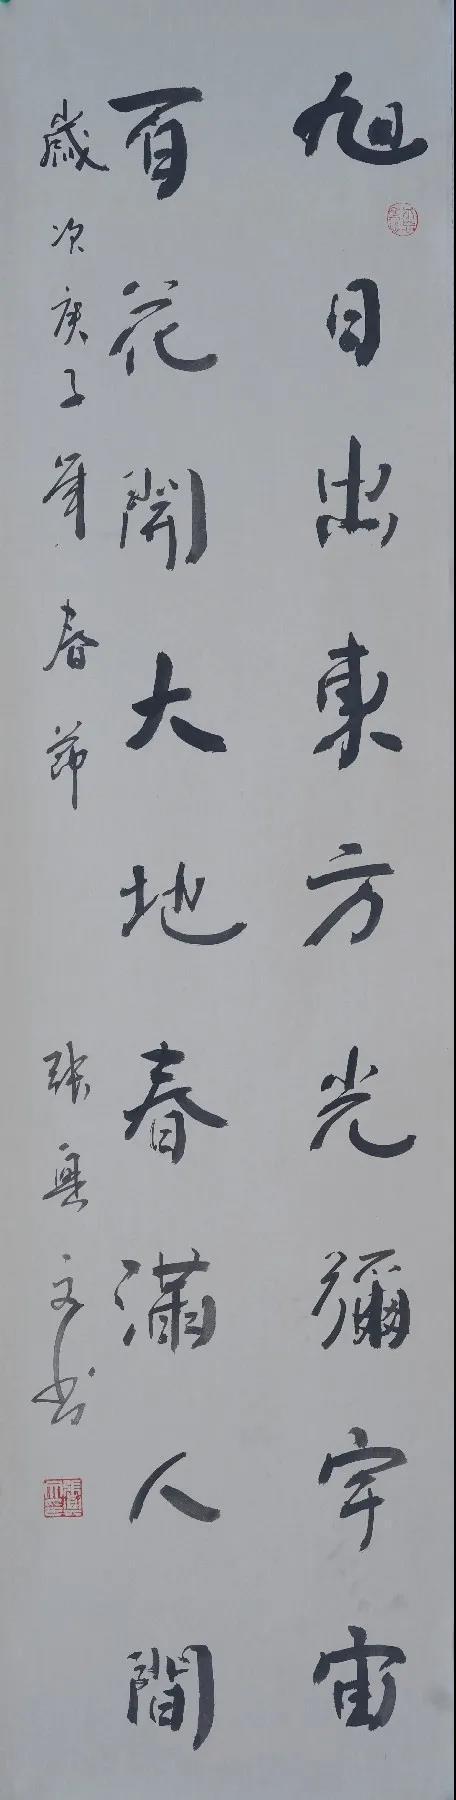 旭日出東方光彌宇宙
百花開大地春滿人間
歲次庚子年春節 張興文書